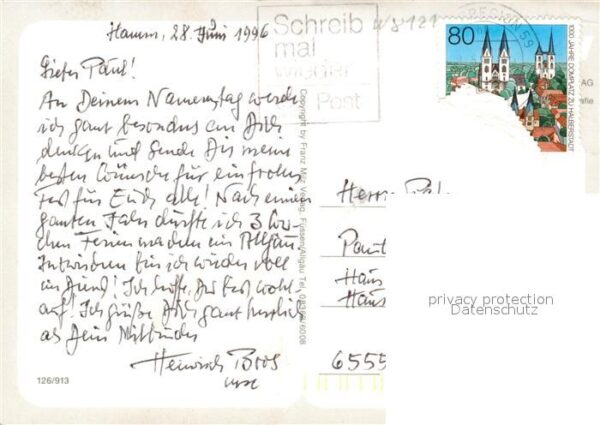 Hamm, 28. Juni 1996
Lieber Paul!
An Deinem Namenstag werde
ich ganz besonders an Dich
denken und sende Dir meine
besten Wünsche für ein frohes
Fest für Euch alle! Nach einem
ganzen Jahr durfte ich 3 Wo-
chen Ferien machen im Allgäu.
Inzwischen bin ich wieder voll
im Dienst! Ich hoffe, Dir geht's wohl-
auf! Ich grüße Dich ganz herzlich
als Dein Mitbruder
Heinrich
126/913
Schreib
mal
wieder
Post
80
1000 JAHRE DOMPLATZ ZU HALBERSTADT
REGION 59
AG
Copyright by Franz Milz Verlag, Füssen/Allgäu Tel.
Herrn
Haus
6555
privacy protection
Datenschutz